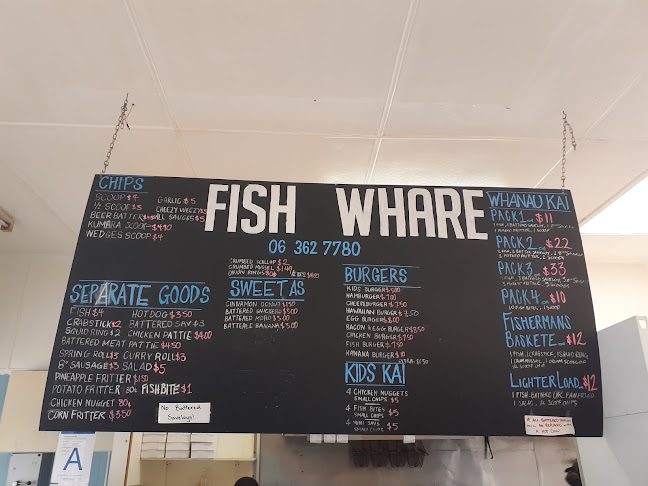 CHIPS
SCOOP $4
½ SCOOP $3
BEER BATTER
KUMARA SCOOP
WEDGES SCOOP $4
GARLIC $5
CHEEZY WEDGES
ALL SAUCES $5
FISH WHARE
06 362 7780
CRUMBED SCALLOP $2
CRUMBED MUSSEL $1.40
ONION RINGS 80¢
SEPARATE GOODS
FISH $4
HOTDOG $3.50
CRABSTICK $2
BATTERED SAV $3
SQUID RING $2
CHICKEN PATTIE $4.00
BATTERED MEAT PATTIE $4.50
SPRING ROLL $3
CURRY ROLL $3
8" SAUSAGE $3
SALAD $5
PINEAPPLE FRITTER $1.50
POTATO FRITTER 80¢
FISHBITE $1
CHICKEN NUGGET 80¢
CORN FRITTER $3.50
No Battered
Saveloys!
SWEET AS
CINNAMON DONUT $1.50
BATTERED SNICKERS $5.00
BATTERED MORO $5.00
BATTERED BANANA $3.00
BURGERS
KIDS BURGER
HAMBURGER $7.00
CHEEBURGER $7.50
HAWAIIAN BURGER $7.50
EGG BURGER $8.00
BACON & EGG BURGER $8.50
CHICKEN BURGER $7.50
FISH BURGER $7.50
MANANA BURGER $10
EXTRA: $1.50
KIDS KAI
4 CHICKEN NUGGETS
SMALL CHIPS $5
4 FISH BITES
SMALL CHIPS $5
4 MINI SAVS
SMALL CHIPS $5
WHANAU KAI
PACK 1 $11
PACK 2 $22
PACK 3 $33
PACK 4 $10
FISHERMANS
BASKET $12
LIGHTER LOAD $12
A